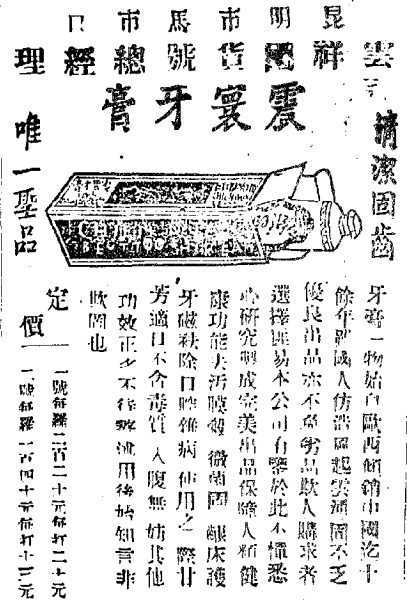 昆明市馬市口
雲祥國貨號總經理
震寰牙膏
清潔固齒
唯一聖品
牙膏一物始自歐西傾銷中國迄十
餘年雖國人仿造風起雲湧固不乏
優良出品亦不免劣品欺人購求者
選擇匪易本公司有鑒於此不憚悉
心研究製成完美出品保障人類健
康功能去污膜殺微菌固齦床護
牙磁袪除口腔雜病使用之際甘
芳適口不含毒質入腹無妨其他
功效正多不待贅述用後始知言非
欺罔也
定價
一號每羅二百二十元每打二十元
二號每羅一百四十元每打十三元